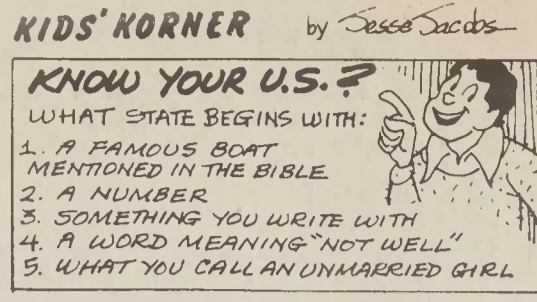 KIDS' KORNER by Jesse Jacobs
KNOW YOUR U.S.?
WHAT STATE BEGINS WITH:
1. A FAMOUS BOAT
MENTIONED IN THE BIBLE
2. A NUMBER
3. SOMETHING YOU WRITE WITH
4. A WORD MEANING "NOT WELL"
5. WHAT YOU CALL AN UNMARRIED GIRL